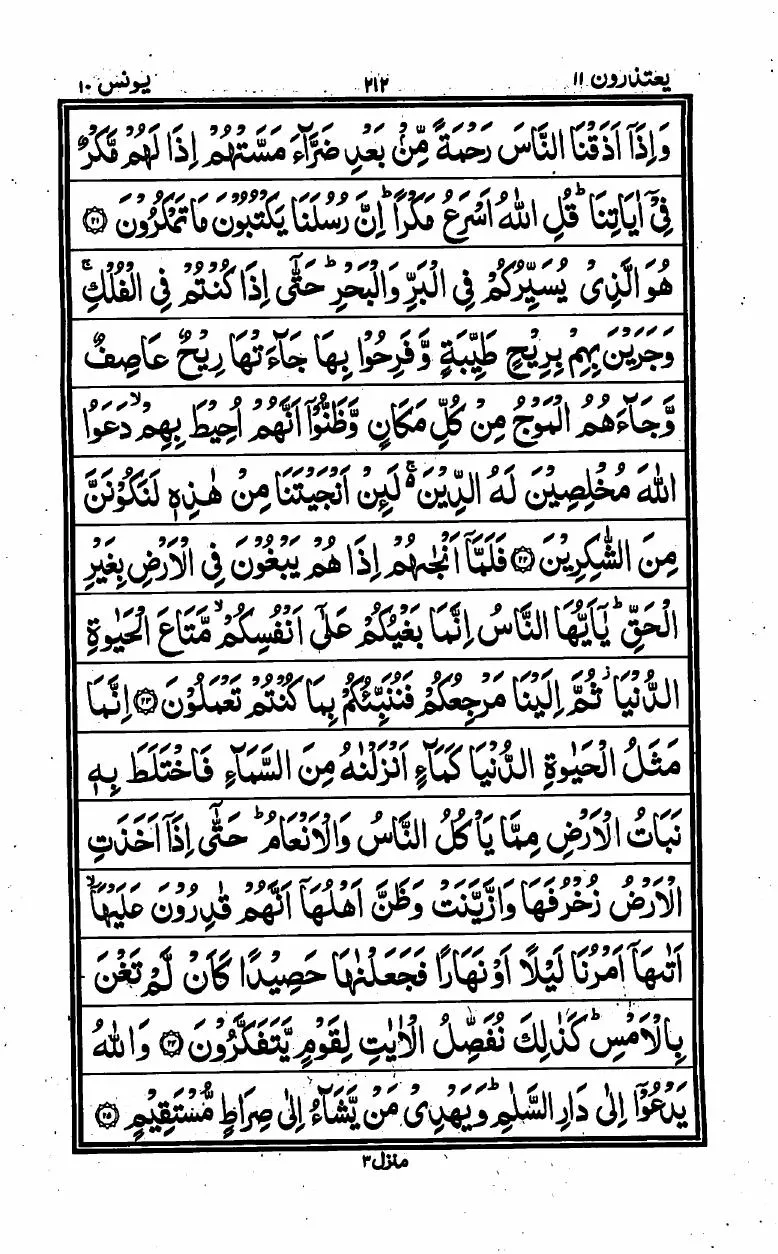 یعتذرون ۱۱ ۲۱۲ یونس ۱۰
وَاِذَاۤ اَذَقْنَا النَّاسَ رَحْمَةً مِّنْۢ بَعْدِ ضَرَّآءَ مَسَّتْهُمْ اِذَا لَهُمْ مَّكْرٌ
فِیْۤ اٰیَاتِنَا ؕ قُلِ اللّٰهُ اَسْرَعُ مَكْرًا ؕ اِنَّ رُسُلَنَا یَكْتُبُوْنَ مَا تَمْكُرُوْنَ ۲۱
هُوَ الَّذِیْ یُسَیِّرُكُمْ فِی الْبَرِّ وَالْبَحْرِ ؕ حَتّٰۤی اِذَا كُنْتُمْ فِی الْفُلْكِ ۚ
وَجَرَیْنَ بِهِمْ بِرِیْحٍ طَیِّبَةٍ وَّفَرِحُوْا بِهَا جَآءَتْهَا رِیْحٌ عَاصِفٌ
وَّجَآءَهُمُ الْمَوْجُ مِنْ كُلِّ مَكَانٍ وَّظَنُّوْۤا اَنَّهُمْ اُحِیْطَ بِهِمْ ۙ دَعَوُا
اللّٰهَ مُخْلِصِیْنَ لَهُ الدِّیْنَ ۚ۬ لَئِنْ اَنْجَیْتَنَا مِنْ هٰذِهٖ لَنَكُوْنَنَّ
مِنَ الشّٰكِرِیْنَ ۲۲ فَلَمَّاۤ اَنْجٰىهُمْ اِذَا هُمْ یَبْغُوْنَ فِی الْاَرْضِ بِغَیْرِ
الْحَقِّ ؕ یٰۤاَیُّهَا النَّاسُ اِنَّمَا بَغْیُكُمْ عَلٰۤی اَنْفُسِكُمْ ۙ مَّتَاعَ الْحَیٰوةِ
الدُّنْیَا ؗ ثُمَّ اِلَیْنَا مَرْجِعُكُمْ فَنُنَبِّئُكُمْ بِمَا كُنْتُمْ تَعْمَلُوْنَ ۲۳ اِنَّمَا
مَثَلُ الْحَیٰوةِ الدُّنْیَا كَمَآءٍ اَنْزَلْنٰهُ مِنَ السَّمَآءِ فَاخْتَلَطَ بِهٖ
نَبَاتُ الْاَرْضِ مِمَّا یَاْكُلُ النَّاسُ وَالْاَنْعَامُ ؕ حَتّٰۤی اِذَاۤ اَخَذَتِ
الْاَرْضُ زُخْرُفَهَا وَازَّیَّنَتْ وَظَنَّ اَهْلُهَاۤ اَنَّهُمْ قٰدِرُوْنَ عَلَیْهَاۤ ۙ
اَتٰىهَاۤ اَمْرُنَا لَیْلًا اَوْ نَهَارًا فَجَعَلْنٰهَا حَصِیْدًا كَاَنْ لَّمْ تَغْنَ
بِالْاَمْسِ ؕ كَذٰلِكَ نُفَصِّلُ الْاٰیٰتِ لِقَوْمٍ یَّتَفَكَّرُوْنَ ۲۴ وَاللّٰهُ
یَدْعُوْۤا اِلٰی دَارِ السَّلٰمِ ؕ وَیَهْدِیْ مَنْ یَّشَآءُ اِلٰی صِرَاطٍ مُّسْتَقِیْمٍ ۲۵
منزل۳